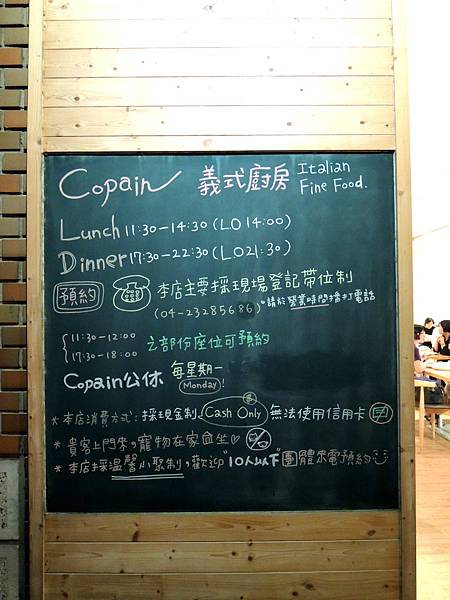 Copain 義式廚房 Italian Fine Food.
Lunch 11:30-14:30 (LO 14:00)
Dinner 17:30-22:30 (LO21:30)
預約 本店主要採現場登記帶位制
(04-23285686) *請於營業時間撥打電話
11:30-12:00
17:30-18:00 之部份座位可預約
Copain公休 每星期一 Monday!
*本店消費方式:採現金制 Cash Only 無法使用信用卡
*貴客上門來,寵物在家自坐♡
*本店採溫馨小聚制,歡迎"10人以下"團體來電預約